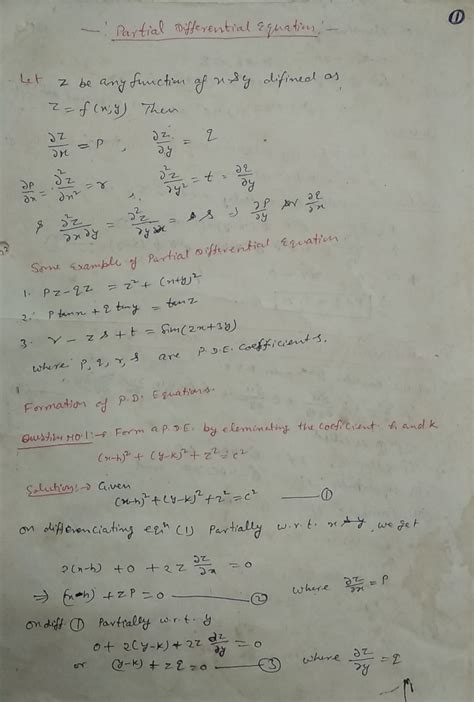 ①
—: Partial Differential Equation :—
Let z be any function of x & y difined as
z = f(x,y) Then
∂z/∂x = p , ∂z/∂y = q
∂p/∂x = ∂²z/∂x² = r , ∂²z/∂y² = t = ∂q/∂y
& ∂²z/∂x∂y = ∂²z/∂y∂x = s ⇒ ∂p/∂y or ∂q/∂x
Some Example of Partial Differential Equation
1. Pz - qz = z² + (x+y)²
2. P tanx + q tany = tanz
3. r - zs + t = Sim(2x+3y)
where P, q, r, s are P.D.E. Coefficients.
Formation of P.D. Equations
Question No 1:→ Form a P.D.E. by elemineting the coficient h and k
(x-h)² + (y-k)² + z² = c²
Solution:→ Given
(x-h)² + (y-k)² + z² = c² —— ①
on differenciating eqⁿ (1) Partially w.r.t. x, we get
2(x-h) + 0 + 2z ∂z/∂x = 0
⇒ (x-h) + zP = 0 —— ② where ∂z/∂x = P
on diff. ① Partially w.r.t. y
0 + 2(y-k) + 2z ∂z/∂y = 0
or (y-k) + zq = 0 —— ③ where ∂z/∂y = q